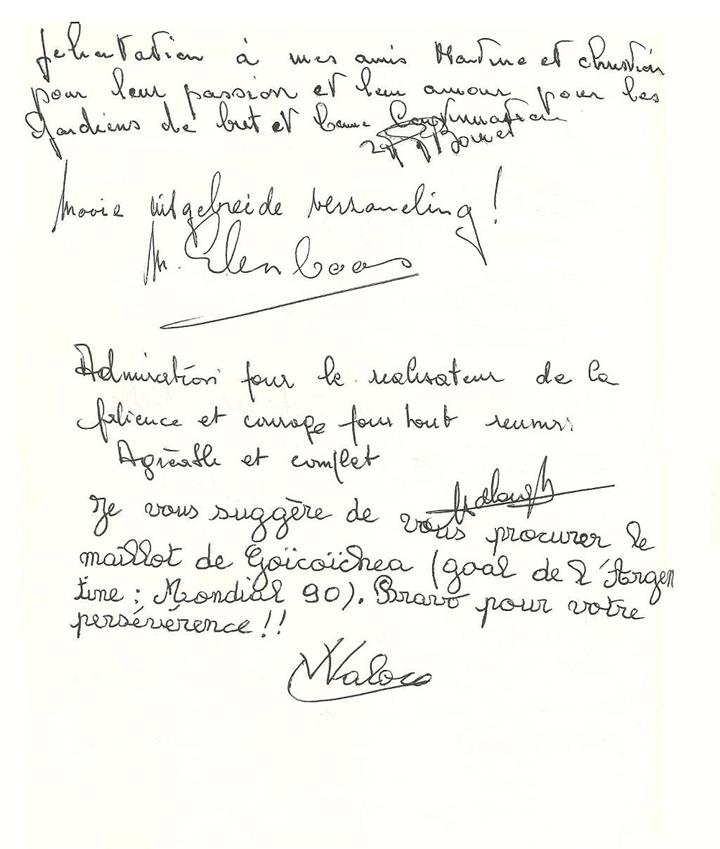 felicitation à mes amis Martine et christian
pour leur passion et leur amour pour les
Gardiens de but et bonne Continuation
Mooie uitgebreide verzameling!
M.
Admiration pour le realisateur de la
patience et courage pour tout reunir.
Agréable et complet
Je vous suggère de vous procurer le
maillot de Goïcoïchea (goal de l'Argen
tine : Mondial 90). Bravo pour votre
persévérence !!